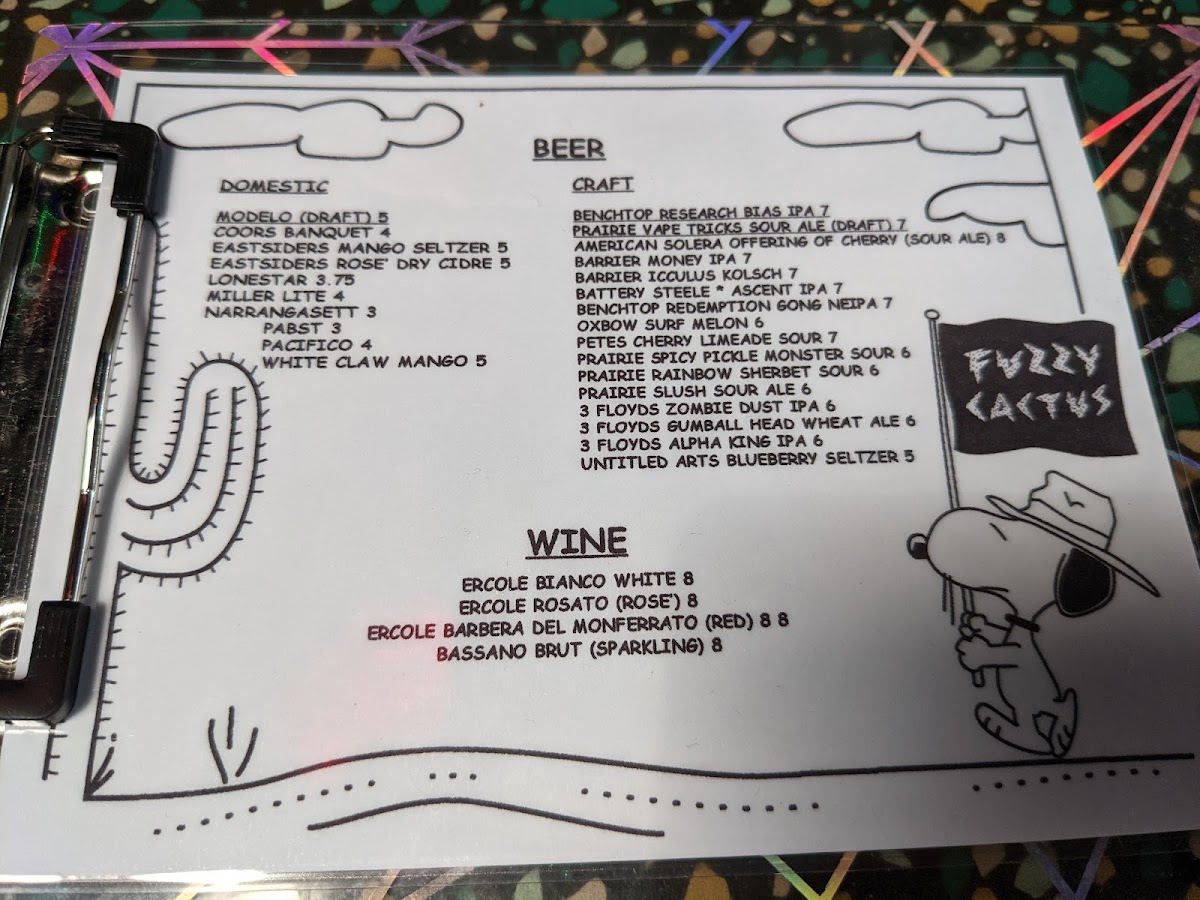 BEER
DOMESTIC
MODELO (DRAFT) 5
COORS BANQUET 4
EASTSIDERS MANGO SELTZER 5
EASTSIDERS ROSE' DRY CIDRE 5
LONESTAR 3.75
MILLER LITE 4
NARRANGASETT 3
PABST 3
PACIFICO 4
WHITE CLAW MANGO 5
CRAFT
BENCHTOP RESEARCH BIAS IPA 7
PRAIRIE VAPE TRICKS SOUR ALE (DRAFT) 7
AMERICAN SOLERA OFFERING OF CHERRY (SOUR ALE) 8
BARRIER MONEY IPA 7
BARRIER ICCULUS KOLSCH 7
BATTERY STEELE * ASCENT IPA 7
BENCHTOP REDEMPTION GONG NEIPA 7
OXBOW SURF MELON 6
PETES CHERRY LIMEADE SOUR 7
PRAIRIE SPICY PICKLE MONSTER SOUR 6
PRAIRIE RAINBOW SHERBET SOUR 6
PRAIRIE SLUSH SOUR ALE 6
3 FLOYDS ZOMBIE DUST IPA 6
3 FLOYDS GUMBALL HEAD WHEAT ALE 6
3 FLOYDS ALPHA KING IPA 6
UNTITLED ARTS BLUEBERRY SELTZER 5
FUZZY
CACTUS
WINE
ERCOLE BIANCO WHITE 8
ERCOLE ROSATO (ROSE') 8
ERCOLE BARBERA DEL MONFERRATO (RED) 8 8
BASSANO BRUT (SPARKLING) 8